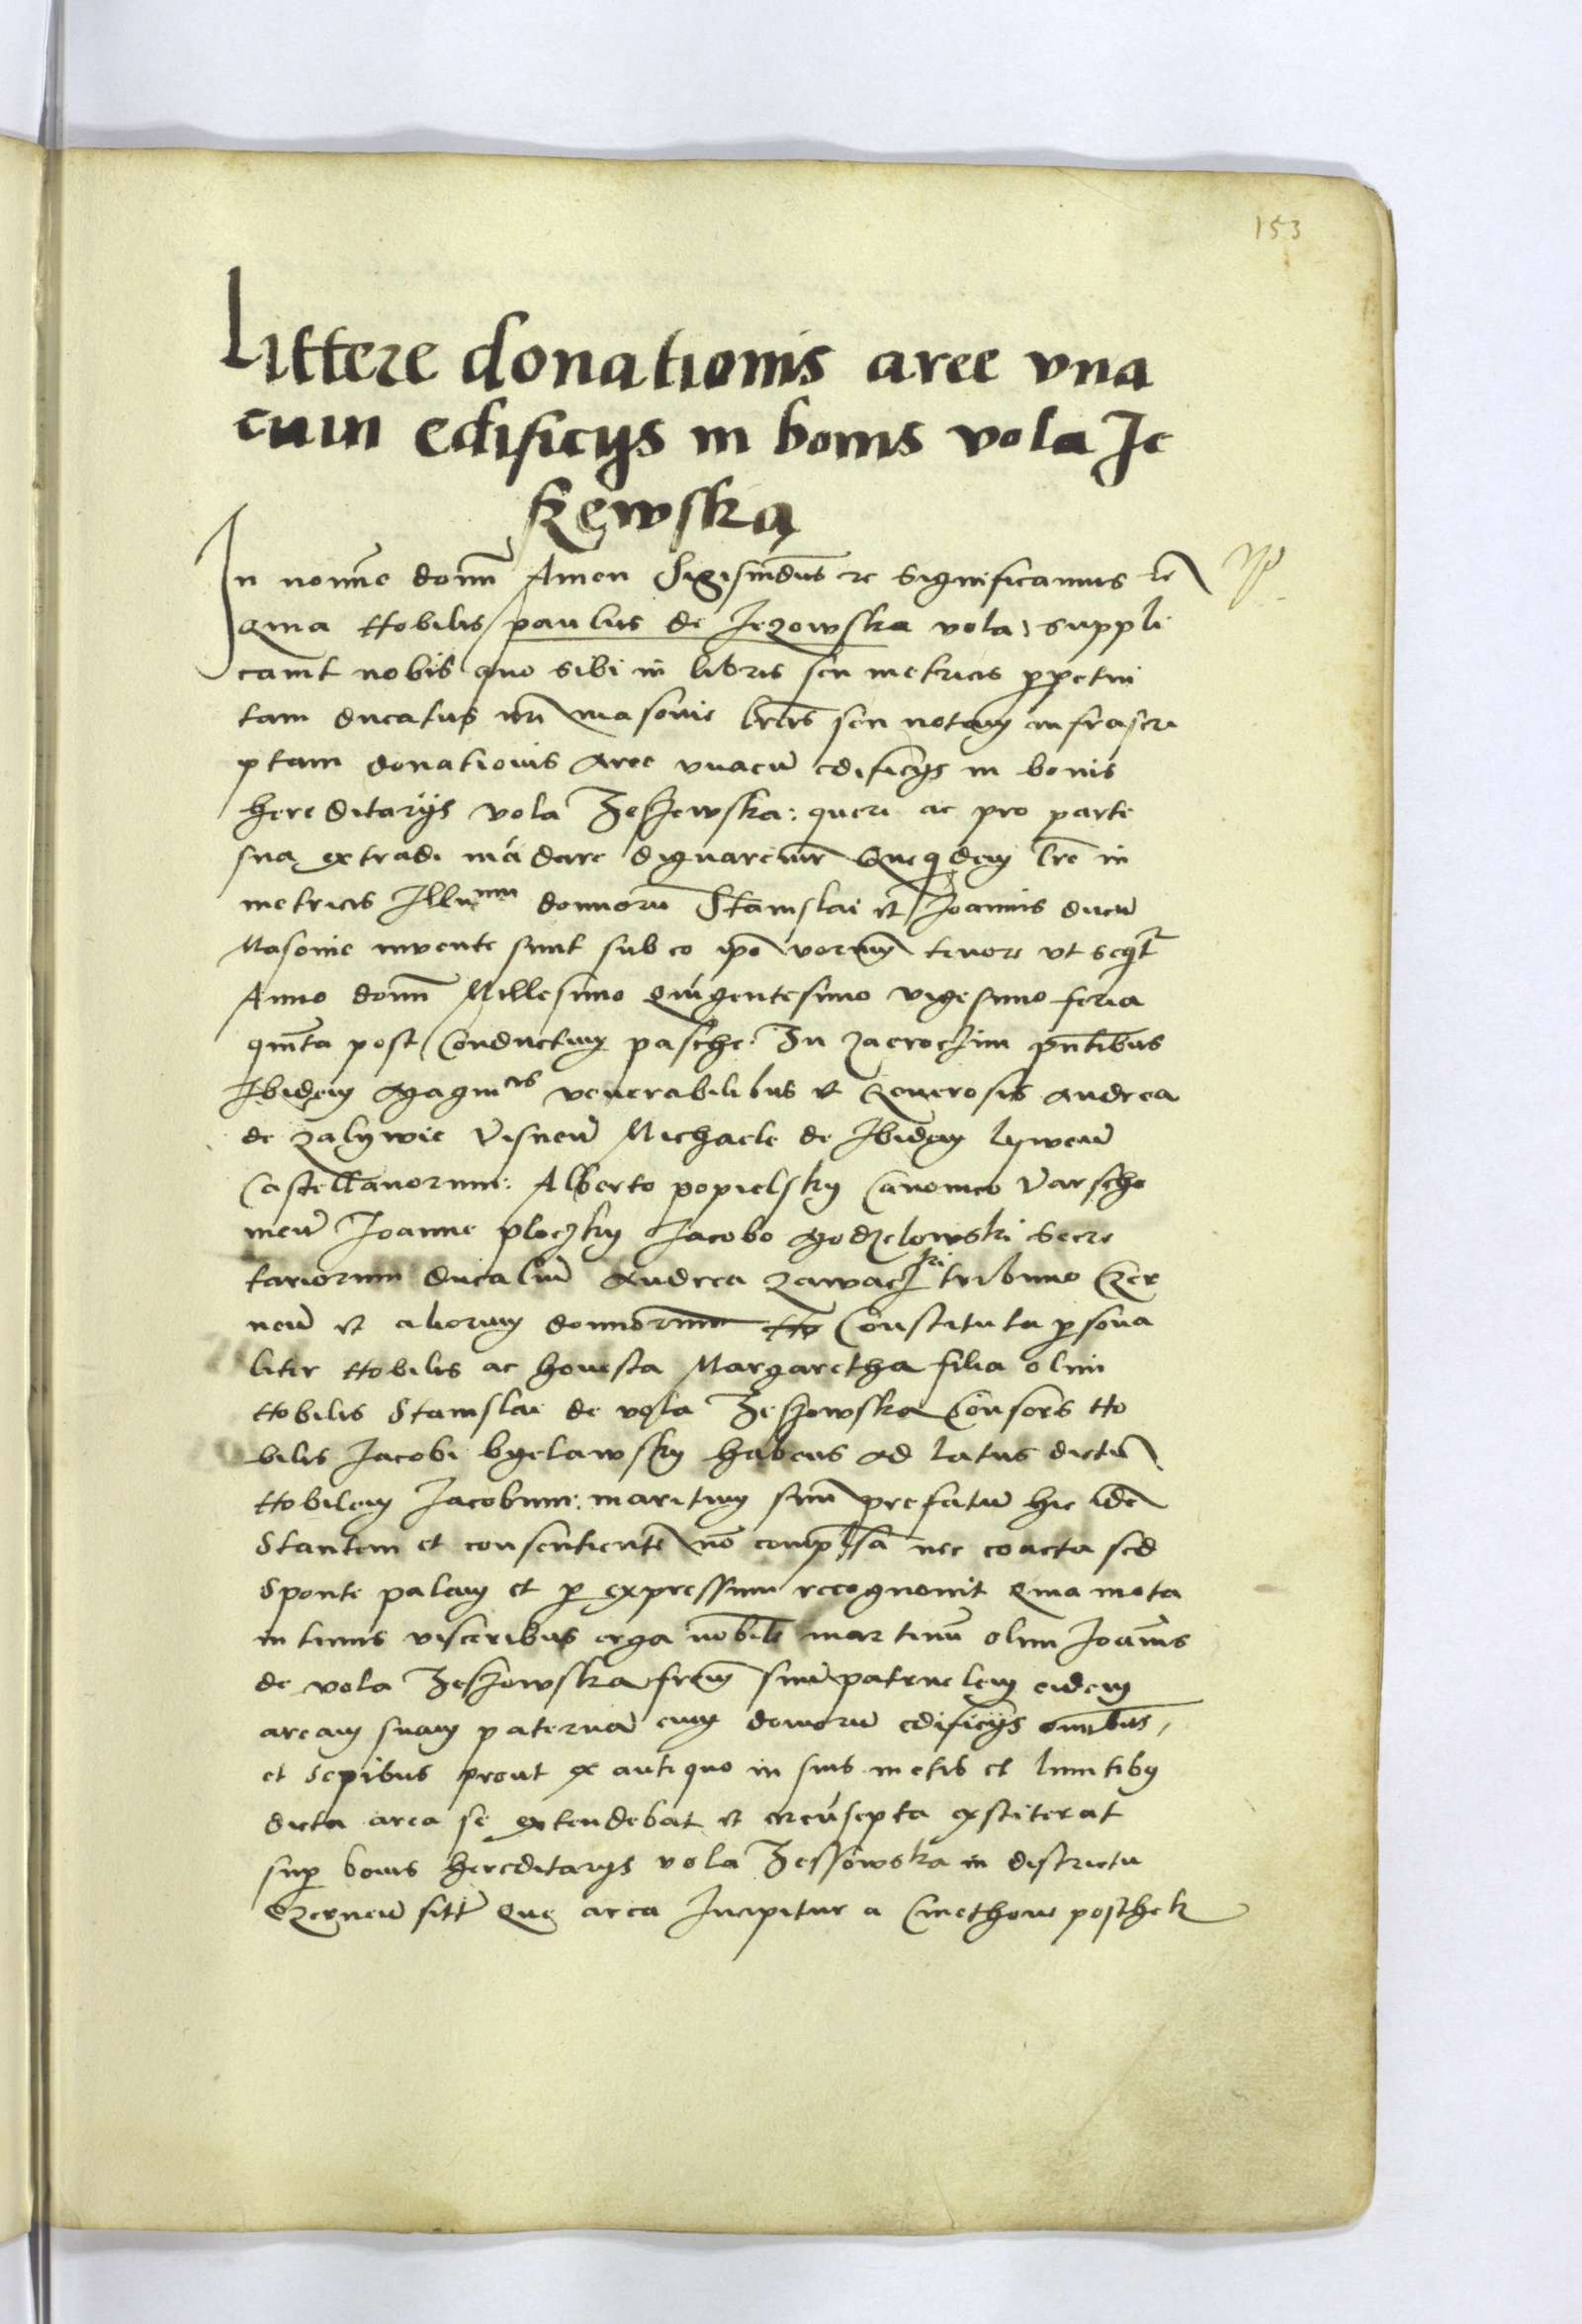 153
Littere donationis aree vna
cum edificijs in bonis vola Je
szewska
In nomine domini Amen Sigismundus rc Significamus rc
Quia Nobilis paulus de Jezowska vola suppli
cauit nobis quo sibi in libris seu metricis perpetui
tam ducatus nri Masouie litteras seu notam infrascri
ptam donationis Aree vnacum edificijs in bonis
hereditarijs vola Jeszewska: queri ac pro parte
sua extradi mandare dignaremur Quequidem lre in
metricis Illmm domnorum Stanislai et Joannis ducum
Masouie inuente sunt sub eo ipo verborum tenore vt sequitur
Anno domini Millesimo Quingentesimo vigesimo feria
quinta post Conductum pasche. In zacroczim presentibus
Ibidem Magnificis venerabilibus et Generosis Andrea
de zalywie Visnen Michaele de Ibidem lywen
Castellanorum: Alberto popielsky Canonico Varscho
uien Joanne ploczky Jacobo Godzelowski Secre
tariorum ducalium Andrea zawaczki tribuno Czer
nen et aliorum domnorum No Constituta persona
liter Nobilis ac honesta Margaretha filia olim
Nobilis Stanislai de vola Jeszowska Consors No
bilis Jacobi byelawsky habens ad latus dictum
Nobilem Jacobum: maritum suum prefatum hic ibidem
Stantem et consentientem non compulsa nec coacta sed
Sponte palam et per expressum recognouit Quia mota
intimis visceribus erga nobilem martinum olim Joannis
de vola Jeszowska fratrem suum patruelem eidem
aream suam paternam cum domorum edificijs omnibus,
et Sepibus prout ex antiquo in suis metis et limitibus
dicta area se extendebat et circumsepta exstiterat
super bonis hereditarijs vola Jessowska in districtu
Czernen sitis Que area Incipitur a Cmethone posthek